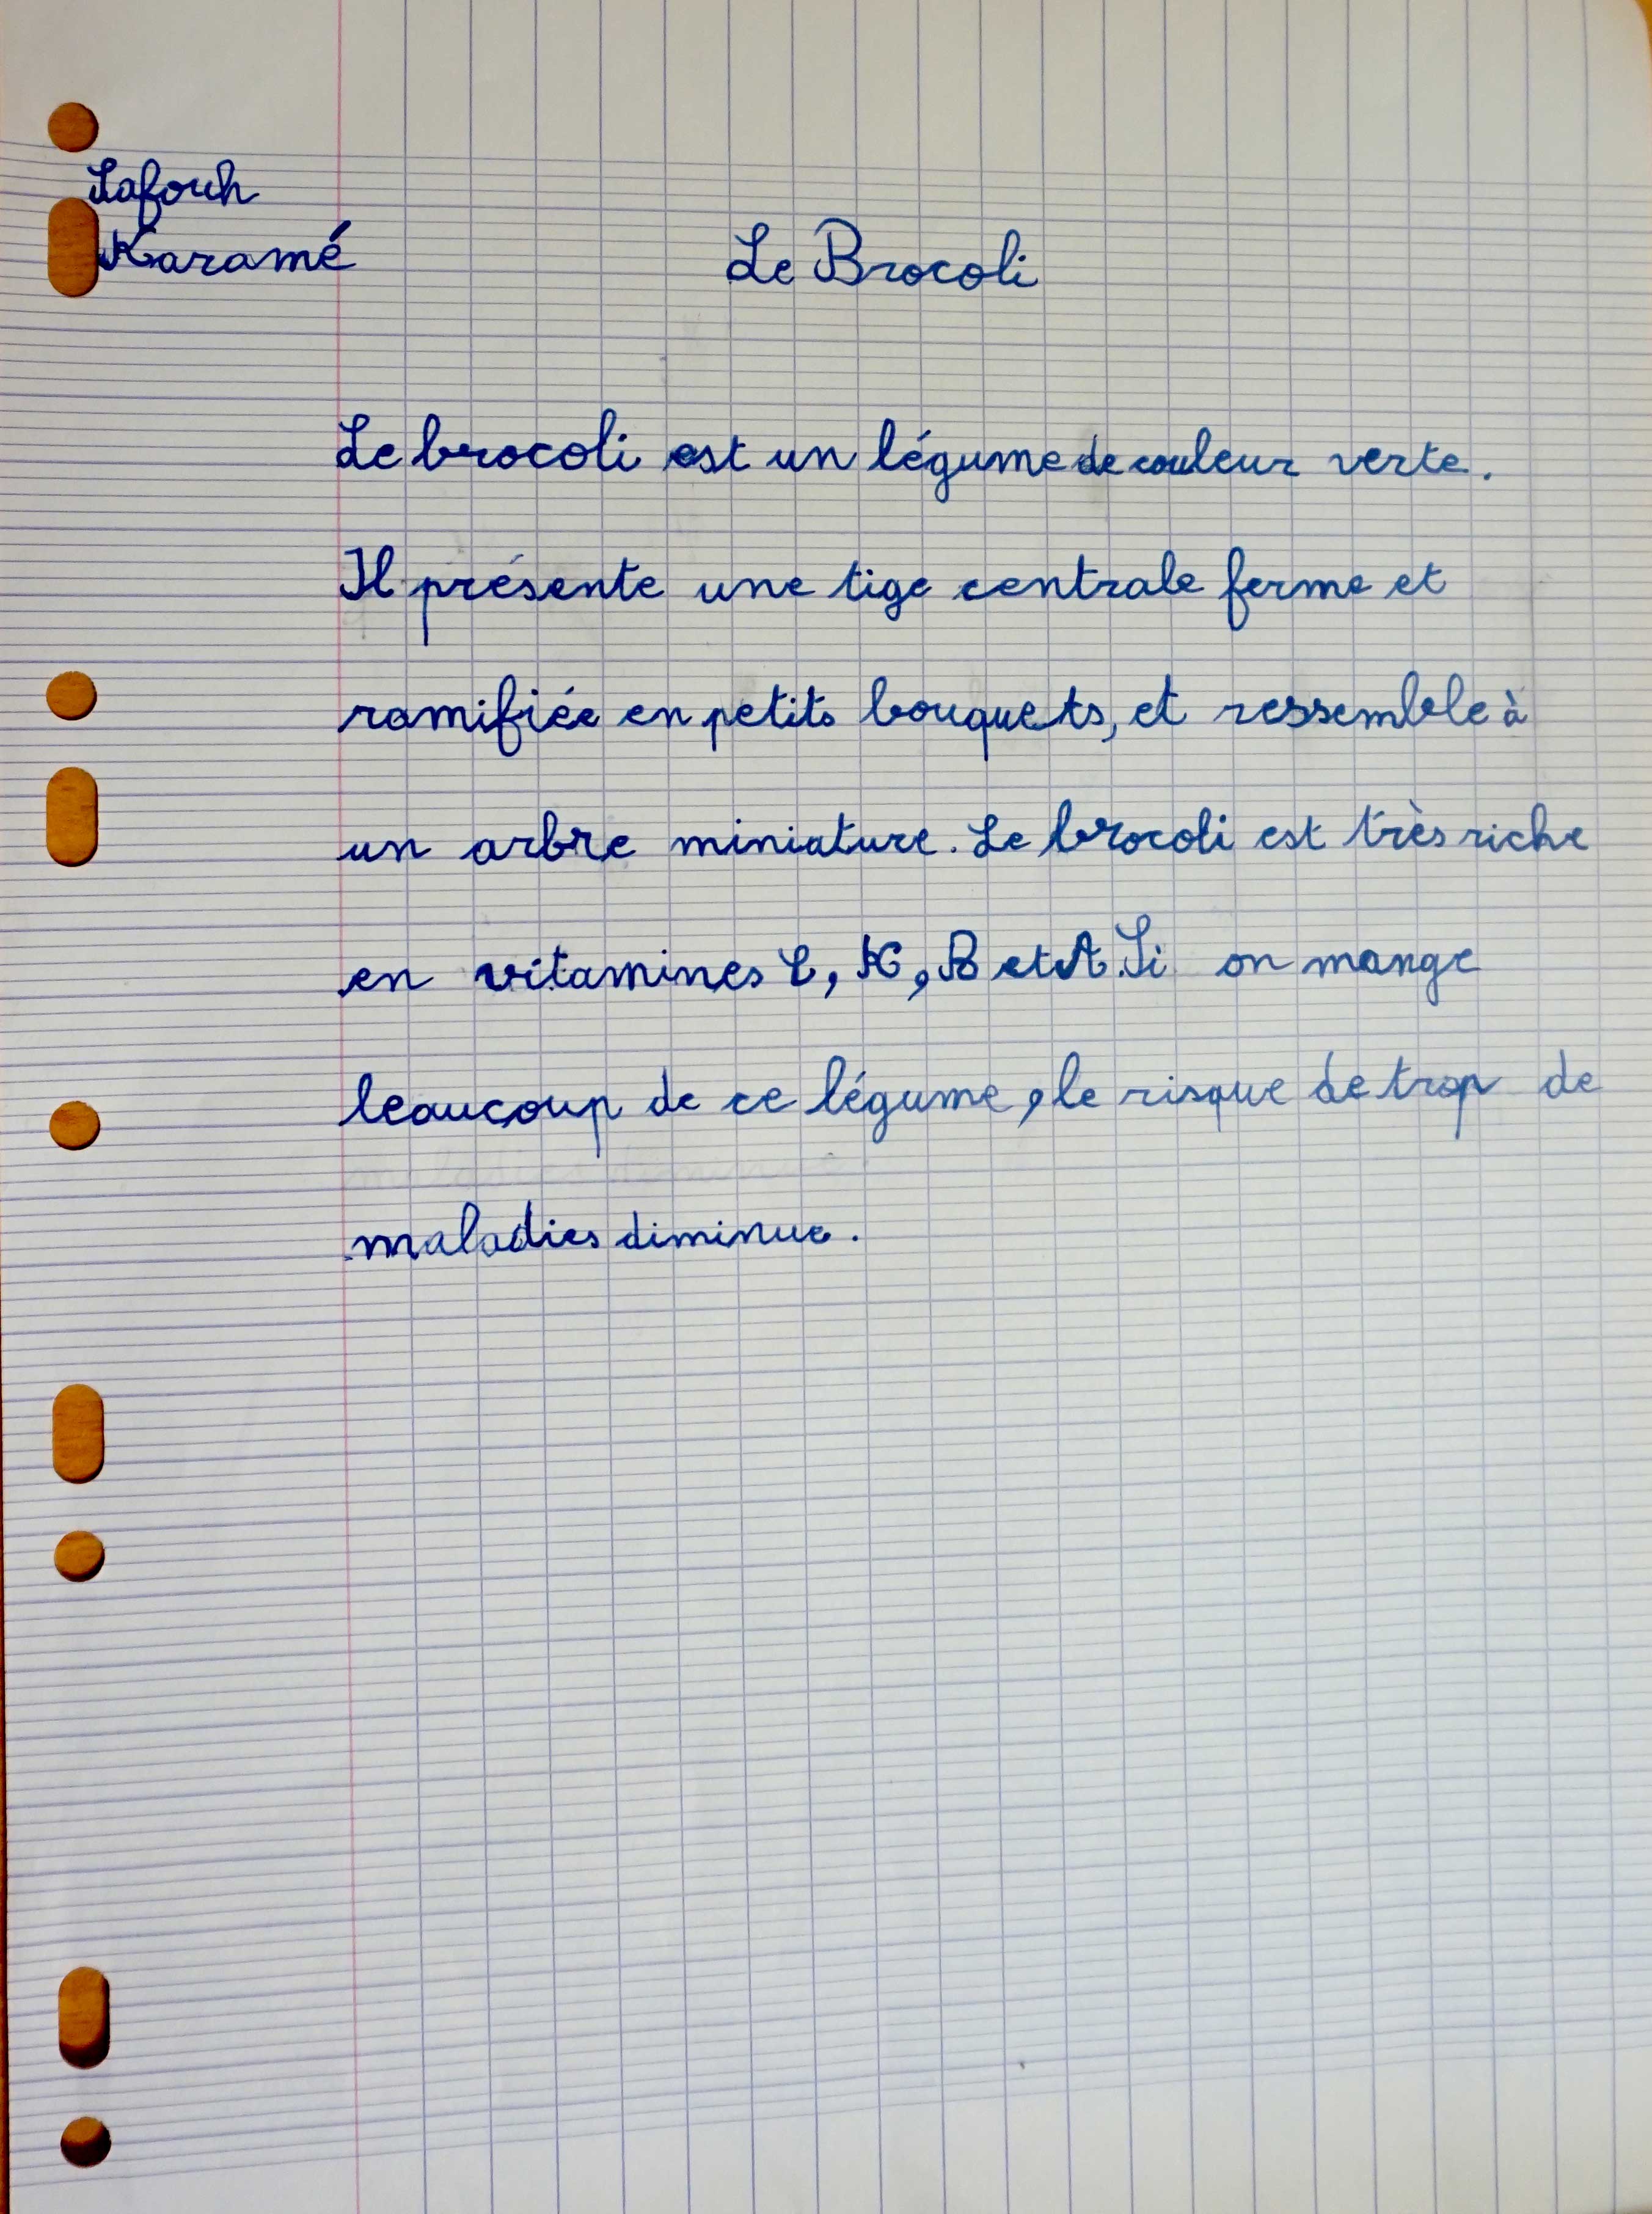 Safouh
Karamé
Le Brocoli
Le brocoli est un légume de couleur verte.
Il présente une tige centrale ferme et
ramifiée en petits bouquets, et ressemble à
un arbre miniature. Le brocoli est très riche
en vitamines C, K, B et A. Si on mange
beaucoup de ce légume, le risque de trop de
maladies diminue.